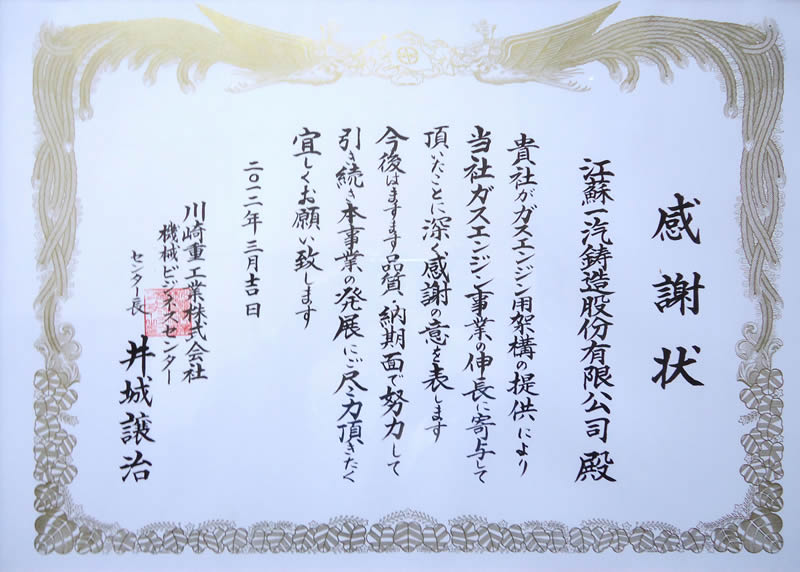 感謝状
江蘇一汽鋳造股份有限公司 殿
貴社がガスエンジン用架構の提供により
当社ガスエンジン事業の伸長に寄与して
頂いたことに深く感謝の意を表します
今後はますます品質・納期面で努力して
引き続き本事業の発展にご尽力頂きたく
宜しくお願い致します
二〇一二年三月吉日
川崎重工業株式会社
機械ビジネスセンター
センター長 井城譲治